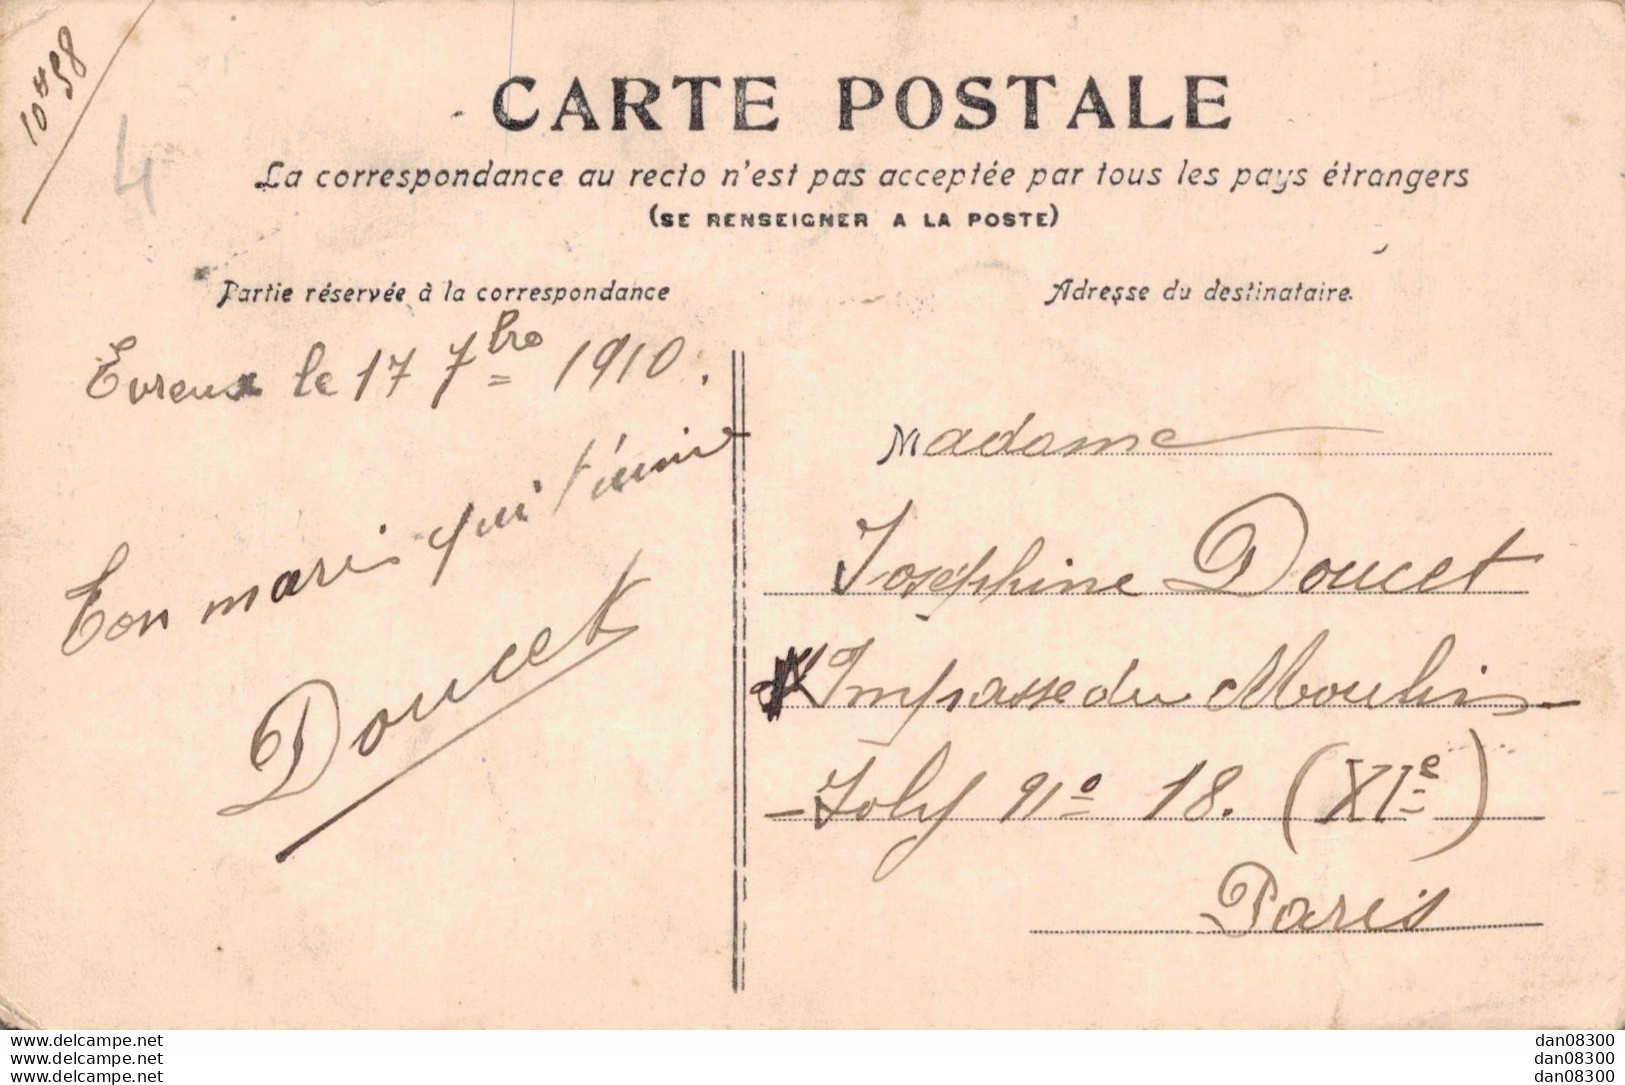 CARTE POSTALE
La correspondance au recto n'est pas acceptée par tous les pays étrangers
(SE RENSEIGNER A LA POSTE)
Partie réservée à la correspondance
Evreux le 17 7bre 1910.
Ton mari qui t'
Doucet
Adresse du destinataire.
Madame
Joséphine Doucet
Impasse du Moulin
-Joly No 18. (XIe)
Paris
4
www.delcampe.net
www.delcampe.net
www.delcampe.net
dan08300
dan08300
dan08300